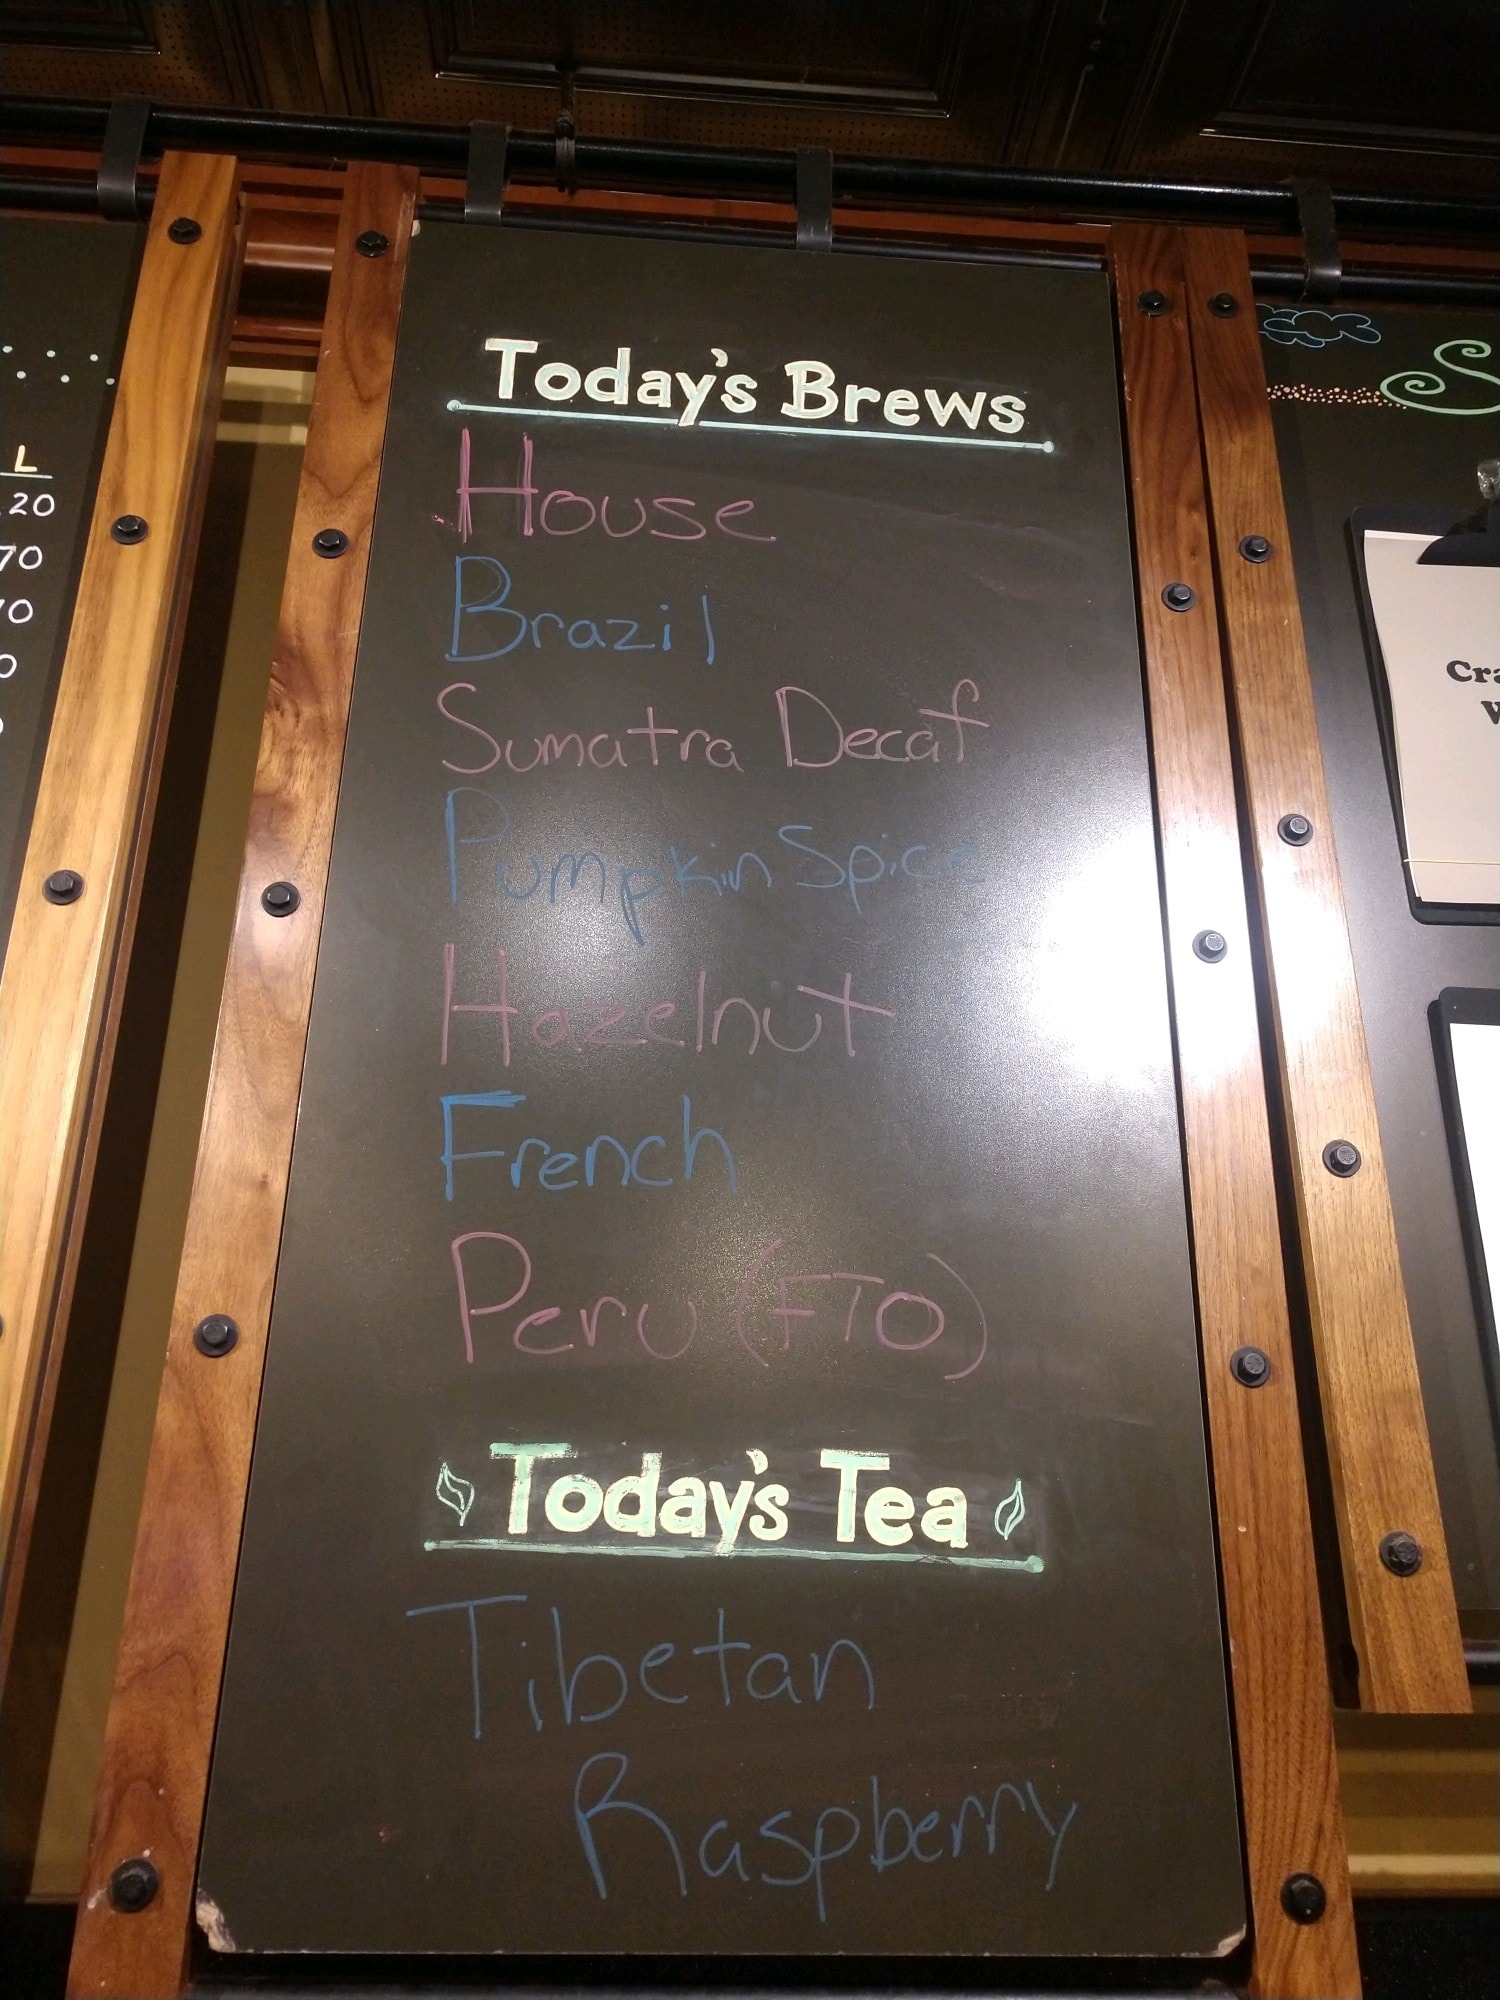 Today's Brews
House
Brazil
Sumatra Decaf
Pumpkin Spice
Hazelnut
French
Peru (FTO)
Today's Tea
Tibetan
Raspberry
L
20
70
0
S